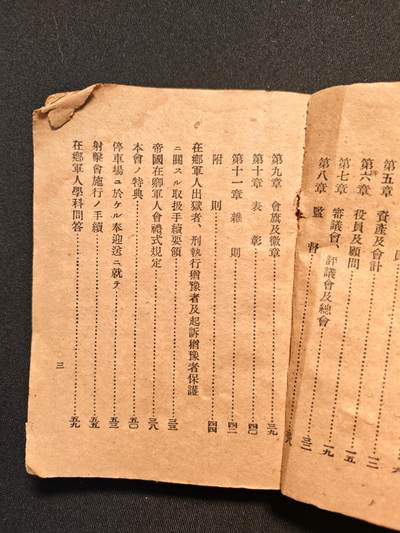 第五章 資産及会計
第六章 役員及顧問………一五
第七章 審議會、評議會及總會………一九
第八章 監督
第九章 會旗及徽章………三九
第十章 表彰………四〇
第十一章 雜則………四二
附則………四四
在鄕軍人出獄者、刑執行猶豫者及起訴猶豫者保護
ニ關スル取扱手續要領
帝國在鄕軍人會禮式規定
本會ノ特典………五〇
停車場ニ於ケル奉迎送ニ就テ………五三
射擊會施行ノ手續………五五
在鄕軍人學科問答………五九
三